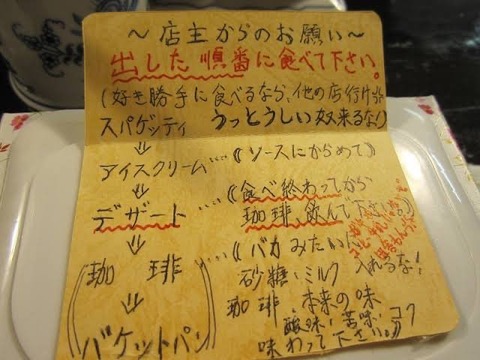 ～店主からのお願い～
出した順番に食べて下さい。
(好き勝手に食べるなら、他の店行け
スパゲッティ うっとうしい奴来るな)
⇓
アイスクリーム…《ソースにからめて》
⇓
デザート …《食べ終わってから
珈琲、飲んで下さい。》
⇓
(珈 琲 …《バカみたいに
砂糖・ミルク 入れるな!
⇓
バケットパン)
珈琲 本来の味
酸味・苦味・コク
味わって下さい。》